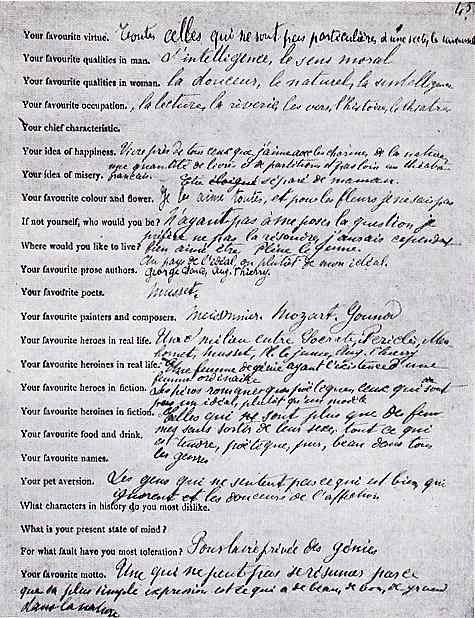 Your favourite virtue. Toutes celles qui ne sont pas particulières à une secte, les universelles
Your favourite qualities in man. L'intelligence, le sens moral
Your favourite qualities in woman. La douceur, le naturel, l'intelligence
Your favourite occupation. La lecture, la rêverie, les vers, l'histoire, le théâtre
Your chief characteristic.
Your idea of happiness. Vivre près de tous ceux que j'aime avec les charmes de la nature
une quantité de livres et de partitions, et pas loin un théâtre
français.
Your idea of misery. Être éloigné séparé de maman
Your favourite colour and flower. Je les aime toutes, et pour les fleurs, je ne sais pas
If not yourself, who would you be? N'ayant pas à me poser la question, je
préfère ne pas la résoudre. J'aurais cependant
bien aimé être Pline le Jeune.
Where would you like to live? Au pays de l'idéal, ou plutôt de mon idéal.
Your favourite prose authors. George Sand, Aug. Thierry.
Your favourite poets. Musset.
Your favourite painters and composers. Meissonnier. Mozart. Gounod
Your favourite heroes in real life. Un milieu entre Socrate, Périclès, Ma
homet, Musset, Pl. le Jeune, Aug. Thierry
Your favourite heroines in real life. Une femme de génie ayant l'existence d'une
femme ordinaire
Your favourite heroes in fiction. Les héros romanesques poétiques, ceux qui sont
un idéal plutôt qu'un modèle
Your favourite heroines in fiction. Celles qui ne sont plus que des fem
mes sans sortir de leur sexe, tout ce qui
Your favourite food and drink. est tendre, poétique, pur, beau dans tous
les genres
Your favourite names.
Your pet aversion. Les gens qui ne sentent pas ce qui est bien, qui
ignorent les douceurs de l'affection
What characters in history do you most dislike.
What is your present state of mind?
For what fault have you most toleration? Pour la vie privée des génies
Your favourite motto. Une qui ne peut pas se résumer parce
que sa plus simple expression est ce qui a de beau, de bon, de grand
dans la nature